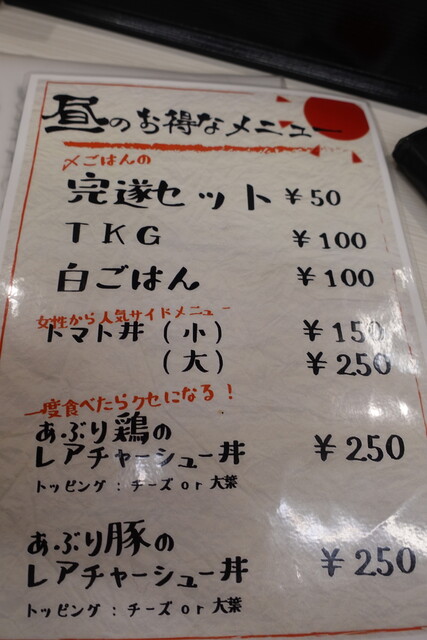 昼のお得なメニュー
〆ごはんの
完遂セット ¥50
TKG ¥100
白ごはん ¥100
女性から人気サイドメニュー
トマト丼 (小) ¥150
(大) ¥250
一度食べたらクセになる!
あぶり鶏の
レアチャーシュー丼 ¥250
トッピング:チーズor大葉
あぶり豚の
レアチャーシュー丼 ¥250
トッピング:チーズor大葉